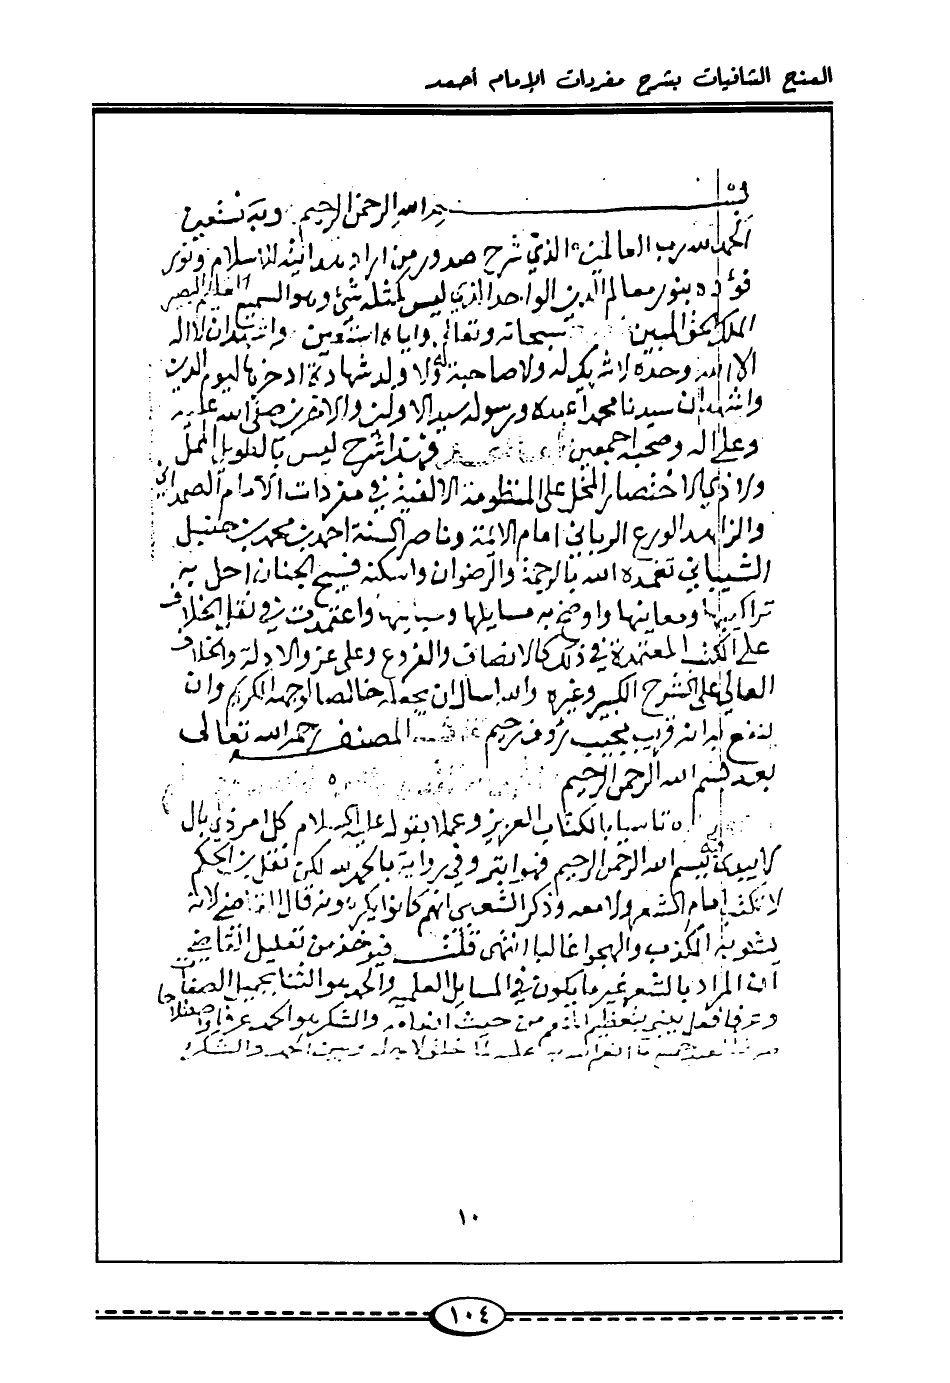 المنح الشافيات بشرح مفردات الإمام أحمد
بسم الله الرحمن الرحيم وبه نستعين
الحمد لله رب العالمين الذي شرح صدور من اراد هدايته للاسلام ونور
فؤاده بنور معالم الدين الواحد الذي ليس كمثله شئ وهو السميع العليم البصير
الملك الحق المبين سبحانه وتعالى واياه استعين واشهد ان لا اله
الا الله وحده لا شريك له ولا صاحبة له ولا ولد شهادة ادخرها ليوم الدين
واشهد ان سيدنا محمدا عبده ورسوله سيد الاولين والاخرين صلى الله عليه
وعلى اله وصحبه اجمعين فهذا شرح ليس بالطويل الممل
ولا ذي الاختصار المخل على المنظومة الالفية في مفردات الامام الصمداني
والزاهد الورع الرباني امام الائمة وناصر السنة احمد بن محمد بن حنبل
الشيباني تغمده الله بالرحمة والرضوان واسكنه فسيح الجنان احل به
تراكيبها ومعانيها واوضح به مسايلها ومبانيها واعتمدت في نقل الخلاف
على الكتب المعتمدة في ذلك كالانصاف والفروع وعلى عزو الادلة والخلاف
العالي على الشرح الكبير وغيره والله اسال ان يجعله خالصا لوجهه الكريم وان
ينفع به انه قريب مجيب رؤف رحيم المصنف رحمه الله تعالى
بعد بسم الله الرحمن الرحيم
تاسيا بالكتاب العزيز وعملا بقوله عليه السلام كل امر ذي بال
لا يبدى فيه ببسم الله الرحمن الرحيم فهو ابتر وفي رواية بالحمد لله لكن نقل بن الحكم
لا تكتب امام الشعر ولا معه وذكر الشعبي انهم كانوا يكرهونه قال القاضي لانه
يشوبه الكذب والهجو غالبا انتهى قلت فيوخذ من تعليل القاضي
ان المراد بالشعر غير ما يكون في المسايل العلمية والحمد هو الثنا بجميل الصفات
وعرفا فعل ينبي بتعظيم المنعم من حيث انعامه والشكر هو الحمد عرفا واصطلاحا
صرف العبد جميع ما انعم الله به عليه لما خلق لاجله وبين الحمد والشكر
١٠
١٠٤